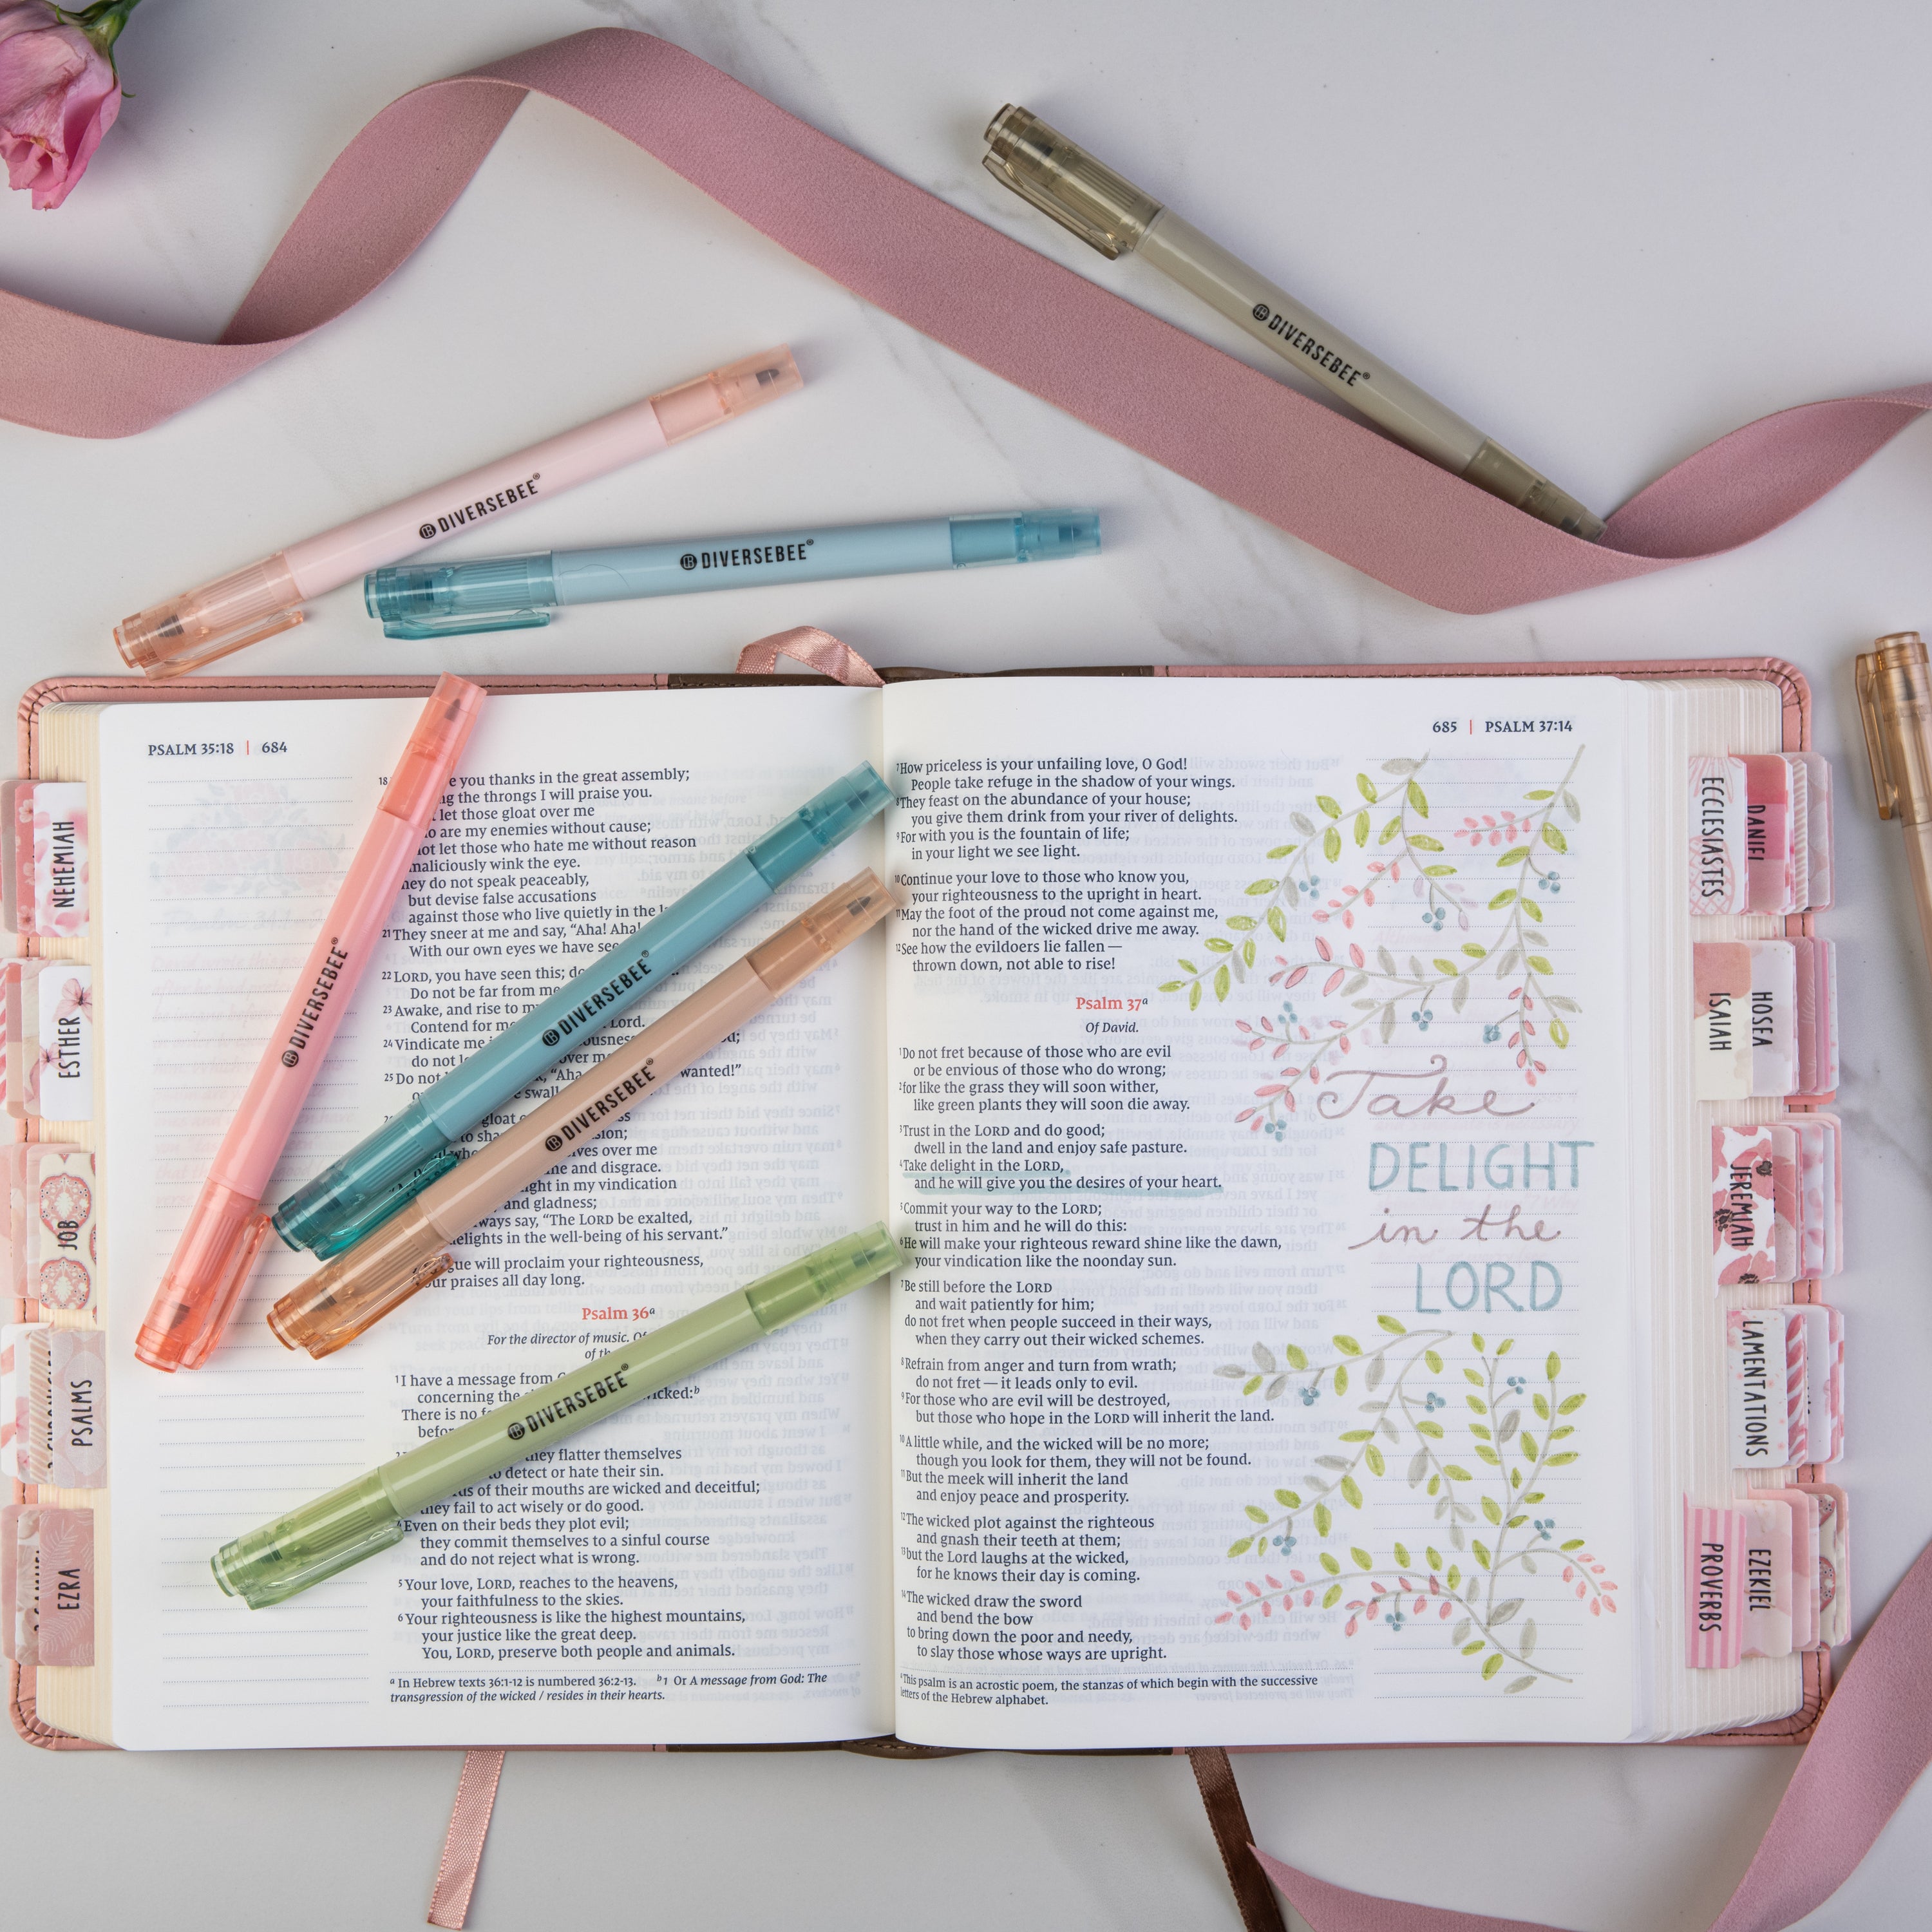 DIVERSEBEE®
DIVERSEBEE®
DIVERSEBEE®
PSALM 35:18 | 684
18
e you thanks in the great assembly;
the throngs I will praise you.
let those gloat over me
are my enemies without cause;
not let those who hate me without reason
maliciously wink the eye.
do not speak peaceably,
but devise false accusations
against those who live quietly in the
21 They sneer at me and say, “Aha! Aha!
With our own eyes we have
22 LORD, you have seen this;
Do not be far from me
23 Awake, and rise to
Contend for
Lord.
24 Vindicate me
do not
over
25 Do not
“Aha
wanted!”
gloat
over me
me and disgrace.
in my vindication
and gladness;
say, “The LORD be exalted,
delights in the well-being of his servant.”
will proclaim your righteousness,
your praises all day long.
Psalm 36a
For the director of music.
of
1 I have a message from
concerning the
wicked:b
There is no
they flatter themselves
to detect or hate their sin.
of their mouths are wicked and deceitful;
they fail to act wisely or do good.
4 Even on their beds they plot evil;
they commit themselves to a sinful course
and do not reject what is wrong.
5 Your love, LORD, reaches to the heavens,
your faithfulness to the skies.
6 Your righteousness is like the highest mountains,
your justice like the great deep.
You, LORD, preserve both people and animals.
a In Hebrew texts 36:1-12 is numbered 36:2-13. b 1 Or A message from God: The
transgression of the wicked / resides in their hearts.
DIVERSEBEE®
DIVERSEBEE®
DIVERSEBEE®
DIVERSEBEE®
685 | PSALM 37:14
7 How priceless is your unfailing love, O God!
People take refuge in the shadow of your wings.
8 They feast on the abundance of your house;
you give them drink from your river of delights.
9 For with you is the fountain of life;
in your light we see light.
10 Continue your love to those who know you,
your righteousness to the upright in heart.
11 May the foot of the proud not come against me,
nor the hand of the wicked drive me away.
12 See how the evildoers lie fallen —
thrown down, not able to rise!
Psalm 37a
Of David.
1 Do not fret because of those who are evil
or be envious of those who do wrong;
2 for like the grass they will soon wither,
like green plants they will soon die away.
3 Trust in the LORD and do good;
dwell in the land and enjoy safe pasture.
4 Take delight in the LORD,
and he will give you the desires of your heart.
5 Commit your way to the LORD;
trust in him and he will do this:
6 He will make your righteous reward shine like the dawn,
your vindication like the noonday sun.
7 Be still before the LORD
and wait patiently for him;
do not fret when people succeed in their ways,
when they carry out their wicked schemes.
8 Refrain from anger and turn from wrath;
do not fret — it leads only to evil.
9 For those who are evil will be destroyed,
but those who hope in the LORD will inherit the land.
10 A little while, and the wicked will be no more;
though you look for them, they will not be found.
11 But the meek will inherit the land
and enjoy peace and prosperity.
12 The wicked plot against the righteous
and gnash their teeth at them;
13 but the Lord laughs at the wicked,
for he knows their day is coming.
14 The wicked draw the sword
and bend the bow
to bring down the poor and needy,
to slay those whose ways are upright.
a This psalm is an acrostic poem, the stanzas of which begin with the successive
letters of the Hebrew alphabet.
Take
DELIGHT
in the
LORD
NEHEMIAH
ESTHER
JOB
PSALMS
EZRA
ECCLESIASTES
DANIEL
ISAIAH
HOSEA
JEREMIAH
LAMENTATIONS
PROVERBS
EZEKIEL